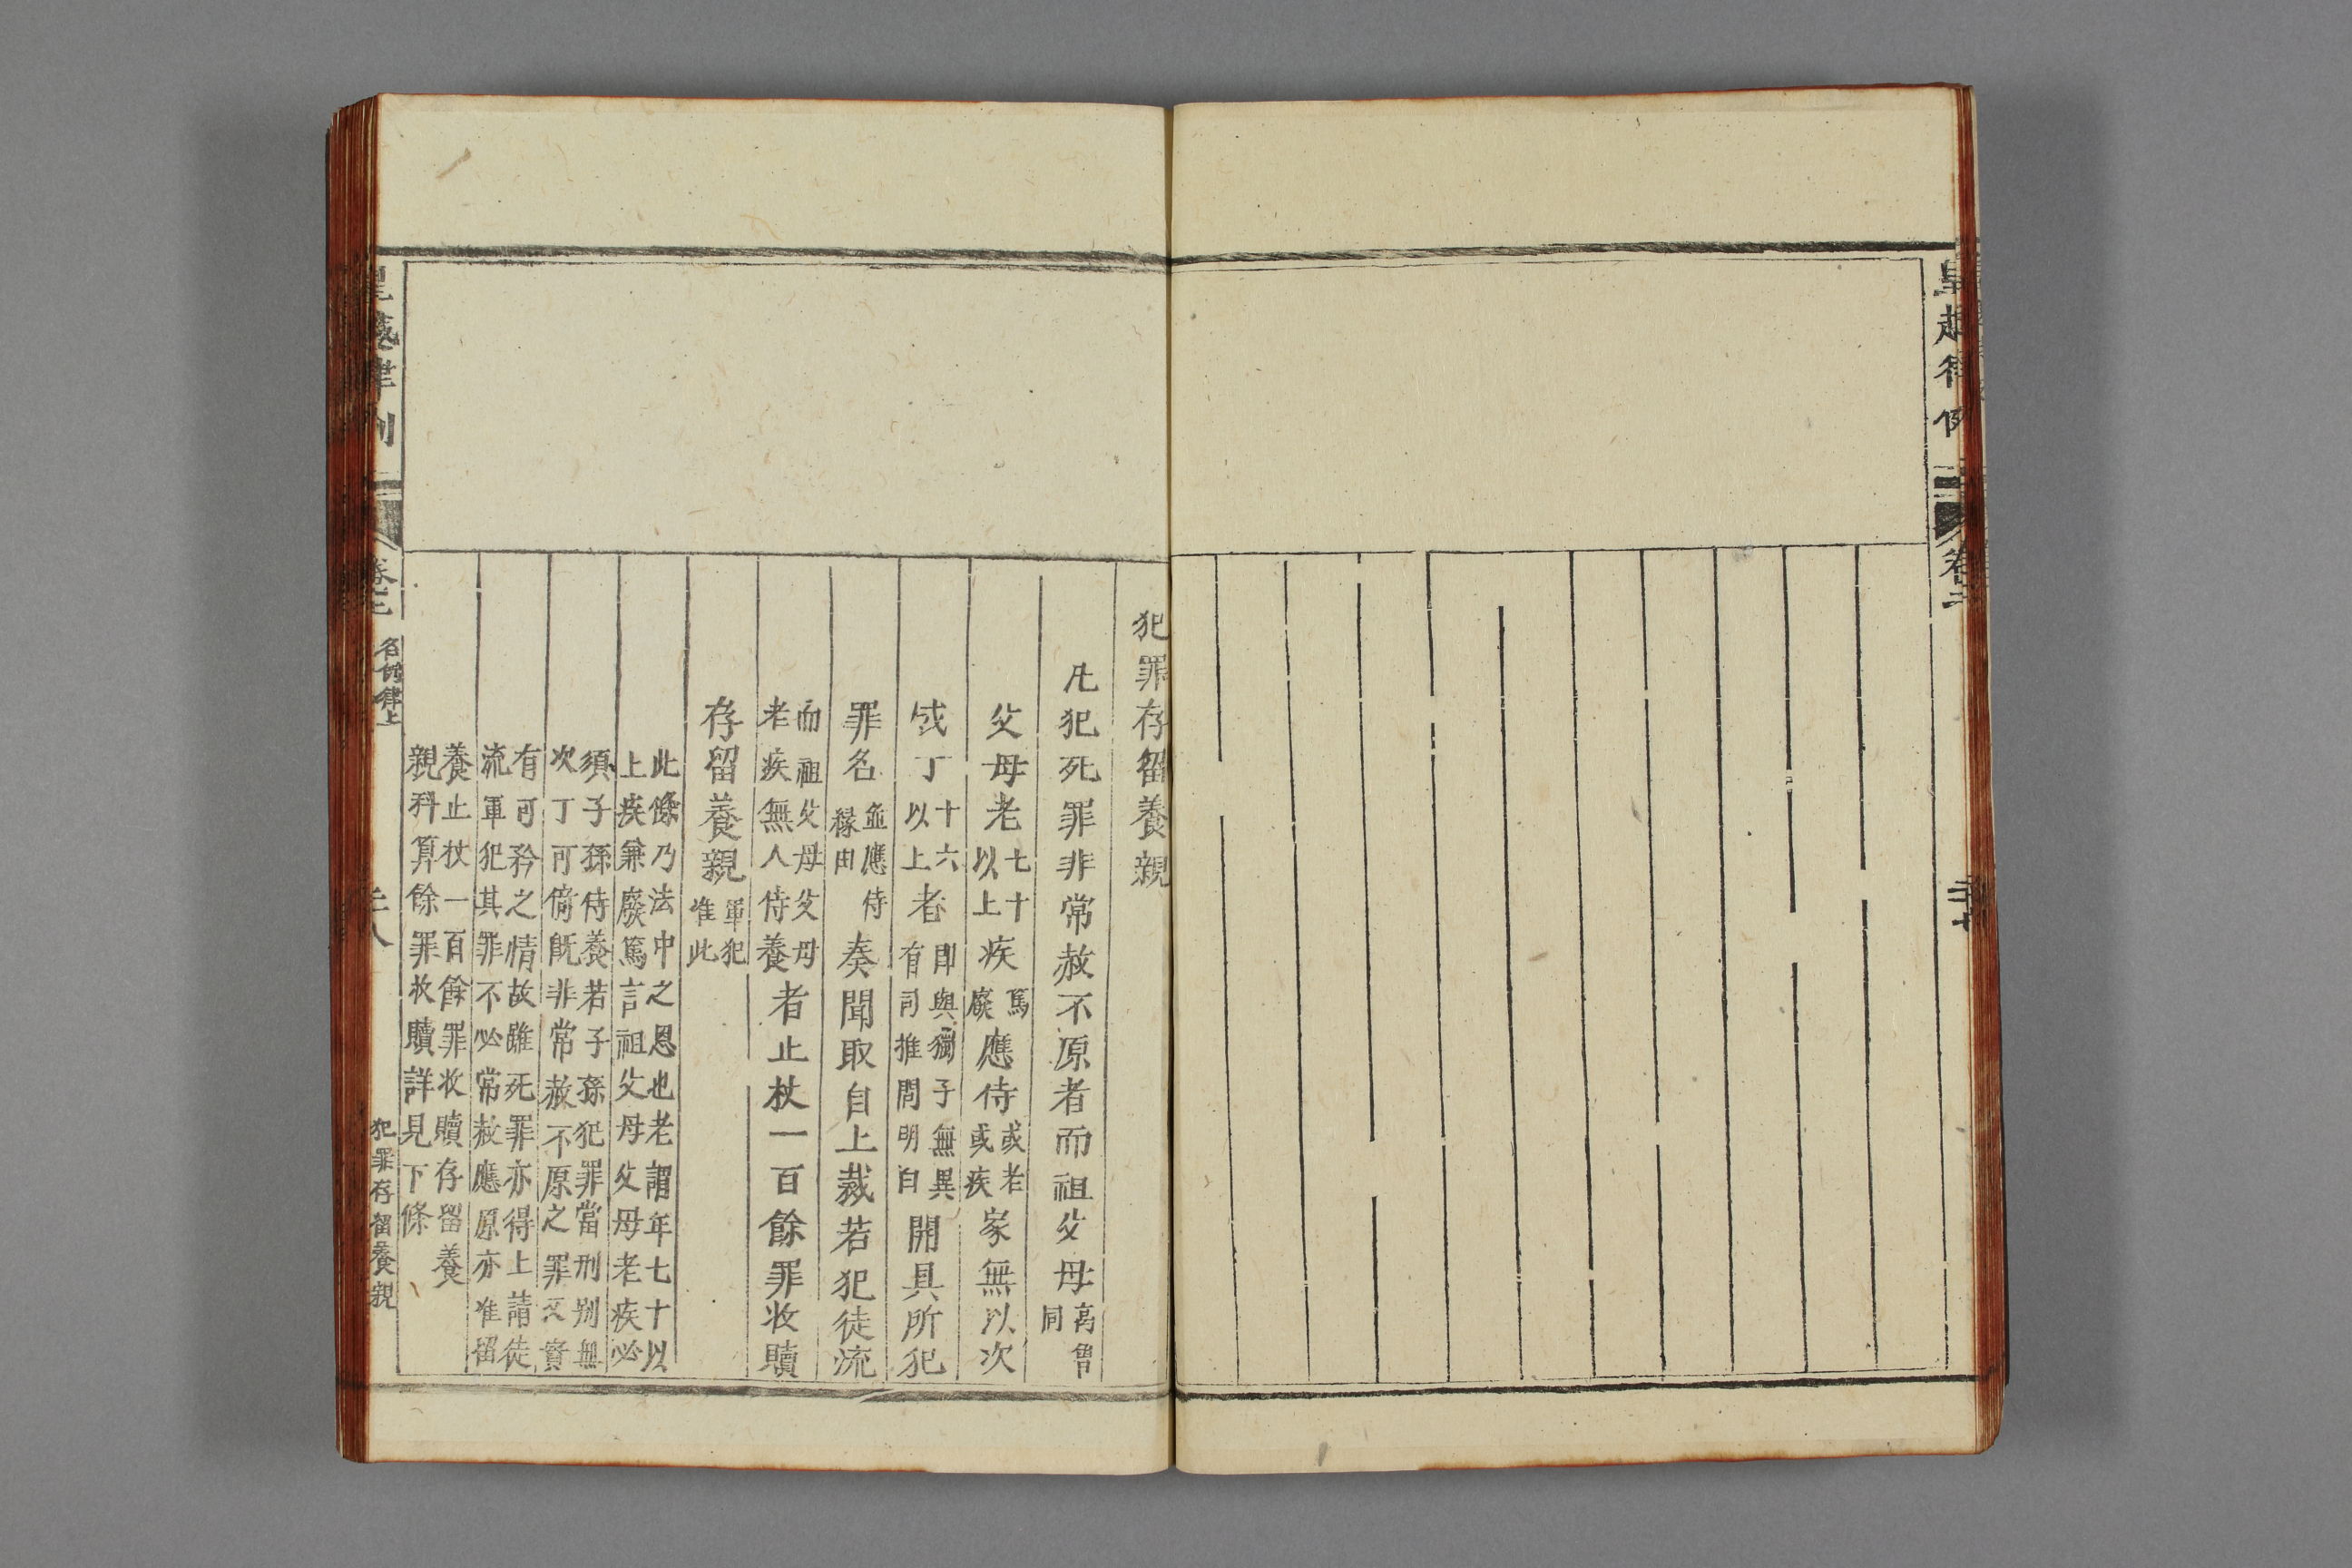 皇越律例
卷二
二十七
犯罪存留養親
凡犯死罪非常赦不原者而祖父母高曾同
父母老七十以上疾篤廢應侍或老或疾家無以次
成丁十六以上者即與獨子無異有司推問明白開具所犯
罪名並應侍緣由奏聞取自上裁若犯徒流
而祖父母父母老疾無人侍養者止杖一百餘罪收贖
存留養親軍犯准此
此條乃法中之恩也老謂年七十以
上疾兼廢篤言祖父母父母老疾必
須子孫侍養若子孫犯罪當刑別無
次丁可倚既非常赦不原之罪又實
有可矜之情故雖死罪亦得上請徒
流軍犯其罪不必常赦應原亦准留
養止杖一百餘罪收贖存留養
親科算餘罪收贖詳見下條
皇越律例
卷二
名例律上
二八
犯罪存留養親